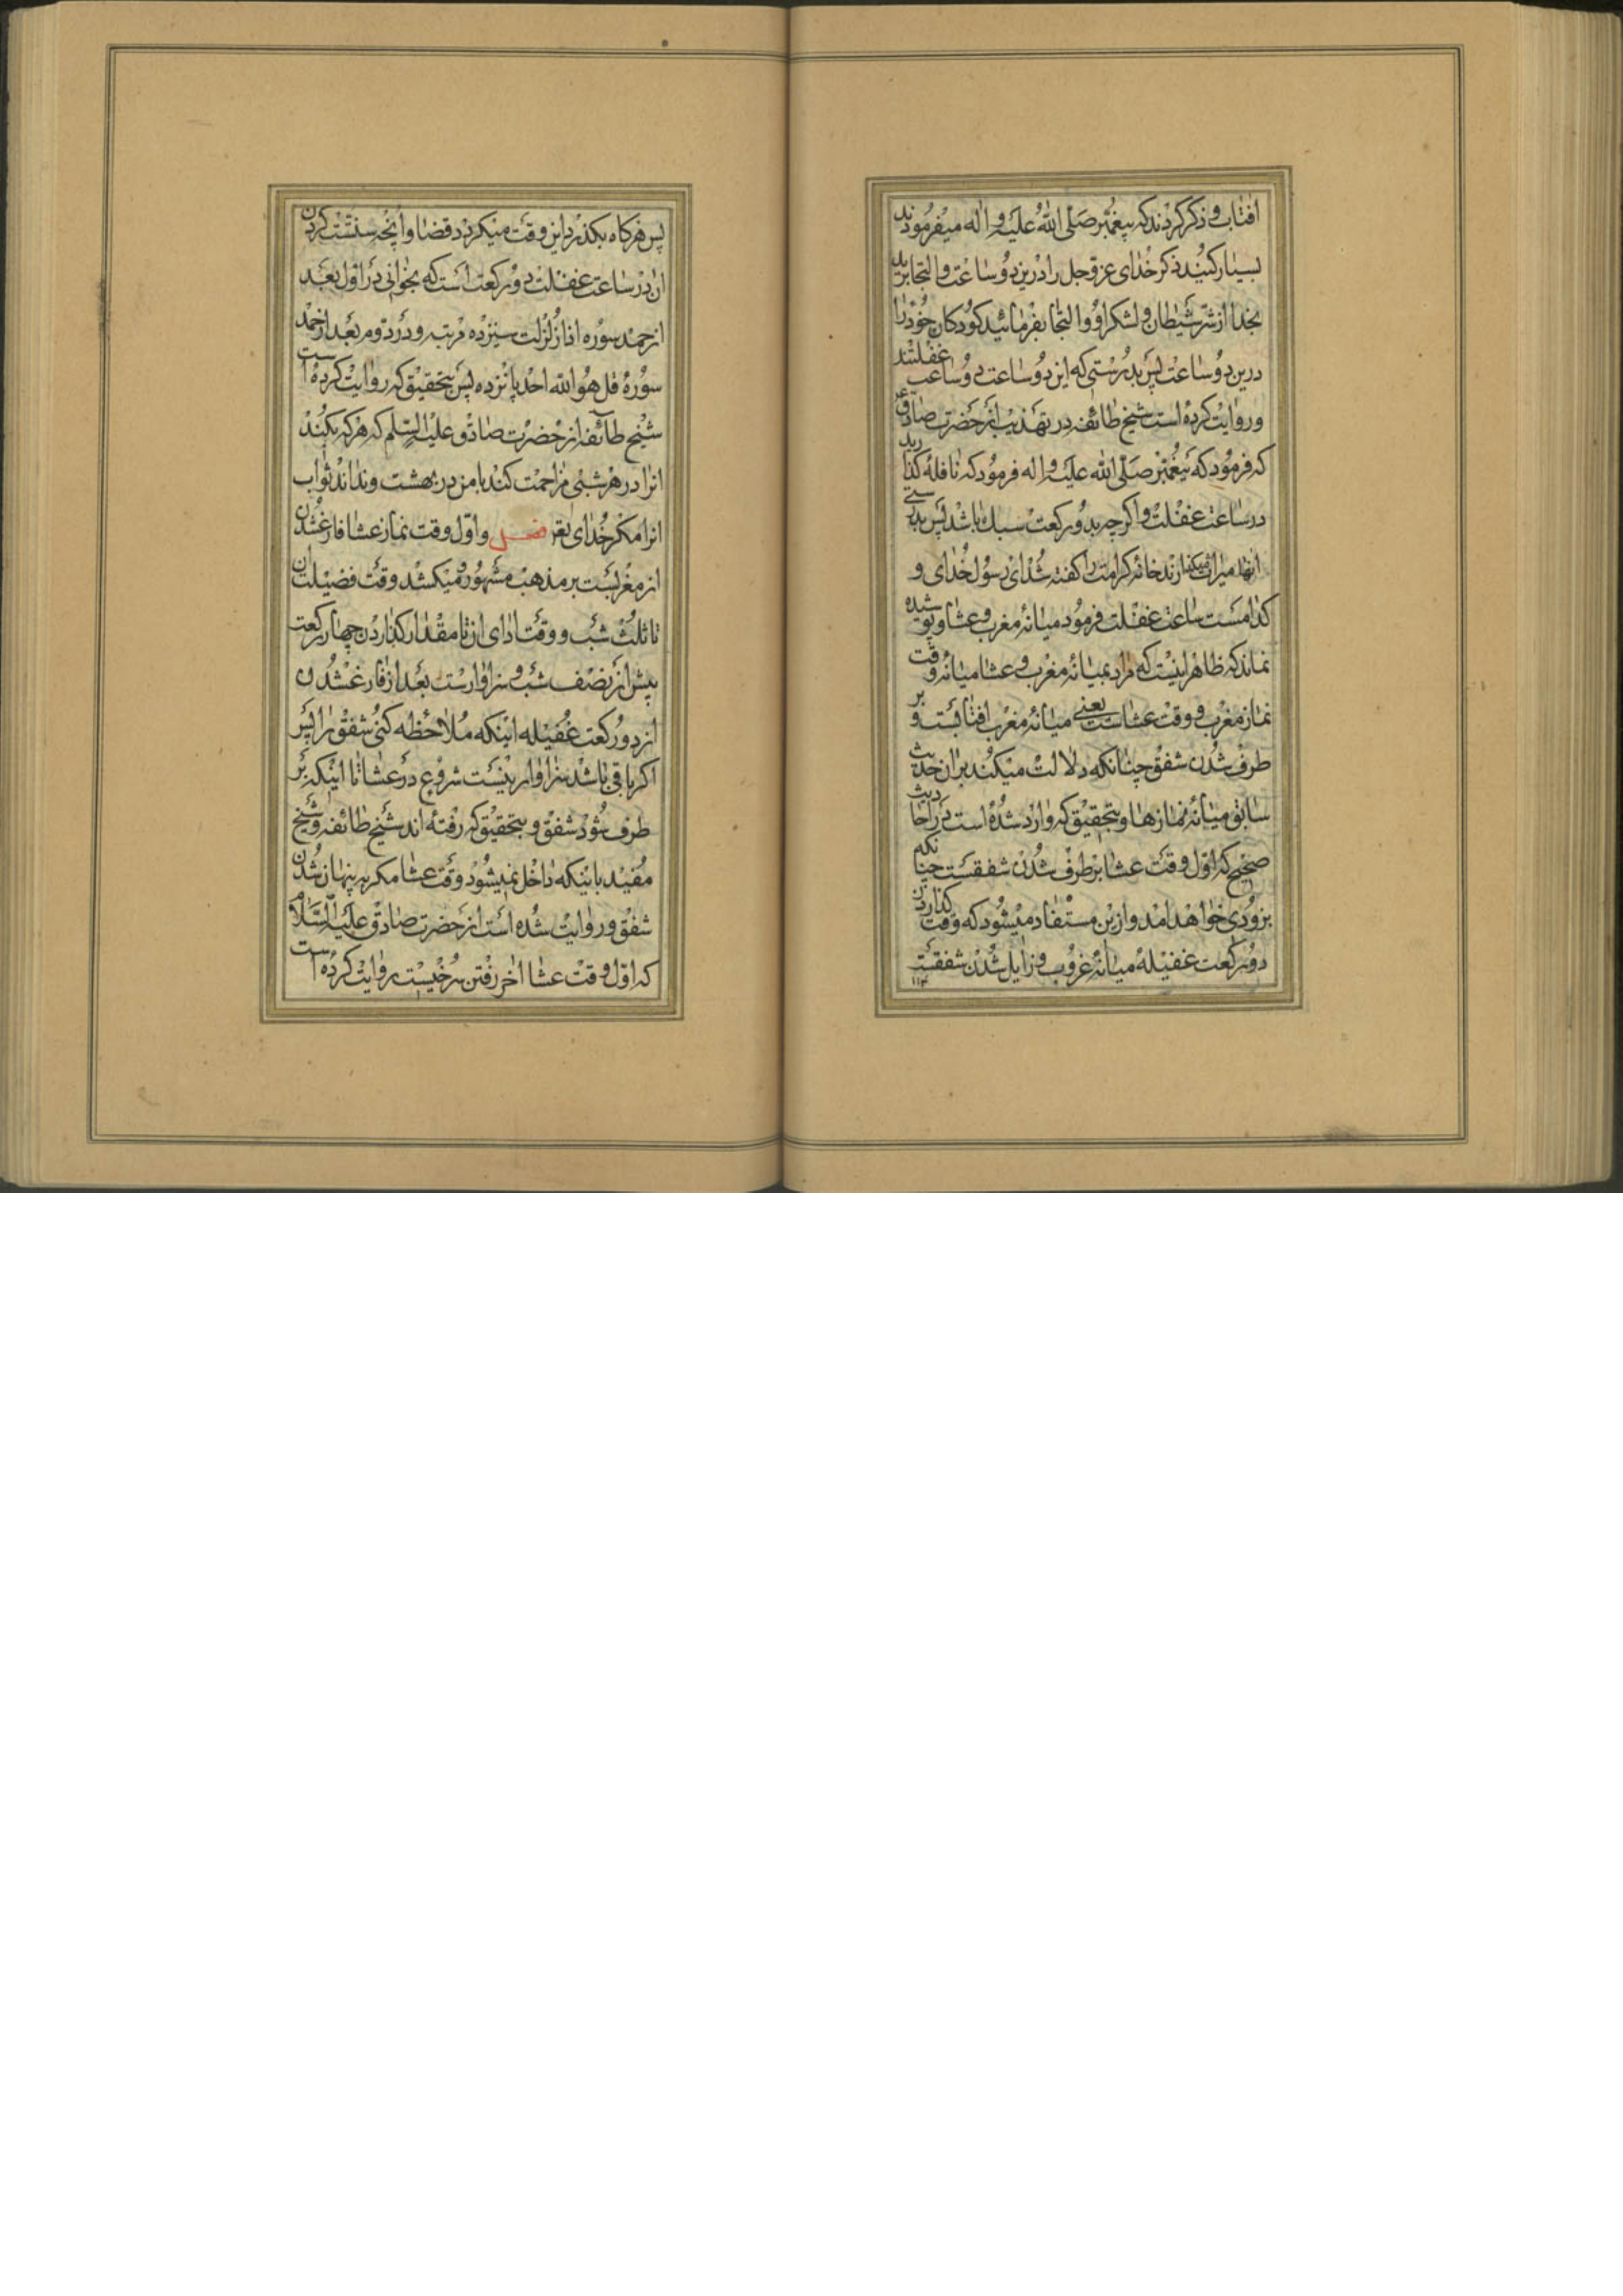 افتاب و ذکر کردند که پیغمبر صلی الله علیه و اله میفرمودند
بسیار کنید ذکر خدای عز و جل را درین دو ساعت و التجا برید
بخدا از شر شیطان و لشکر او و التجا بفرمائید کودکان خود را
درین دو ساعت پس بدرستی که این دو ساعت دو ساعت غفلتند
و روایت کرده است شیخ طائفه در تهذیب از حضرت صادق ع
که فرمود که پیغمبر صلی الله علیه و اله فرمود که نافله کذارید
در ساعت غفلت و اکرچه بدو رکعت سبك باشد پس بدرستی
انها میراث میکذارند خانه کرامت را کفته شد ای رسول خدای و
کدامست ساعت غفلت فرمود میانه مغرب و عشا و پوشیده
نماند که ظاهر اینست که مراد بمیانه مغرب و عشا میانه وقت
نماز مغرب و وقت عشاست یعنی میانه مغرب افتابست و بر
طرف شدن شفق چنانکه دلالت میکند بران حدیث
سابق میانه نمازها و بتحقیق که وارد شده است در احادیث
صحیح که اول وقت عشا برطرف شدن شفقست چنانکه
بزودی خواهد امد و ازین مستفاد میشود که وقت کذاردن
دو رکعت غفیله میانه غروب و زایل شدن شفقست
۱۱۳
پس هرکاه بکذرد این وقت میکردد قضا و انچه سنتست کردن
ان در ساعت غفلت دو رکعت است که بخوانی در اول بعد
از حمد سوره اذا زلزلت سیزده مرتبه و در دوم بعد از حمد
سوره قل هو الله احد پانزده پس بتحقیق که روایت کرده است
شیخ طائفه از حضرت صادق علیه السلم که هرکه بکند
انرا در هر شبی مزاحمت کند با من در بهشت و نداند ثواب
انرا مکر خدای تعه فصل و اول وقت نماز عشا فارغ شدن
از مغربست بر مذهب مشهور و میکشد وقت فضیلت ان
تا ثلث شب و وقت ادای ان تا مقدار کذاردن چهار رکعت
پیش از نصف شب و سزاوارست بعد از فارغ شدن
از دو رکعت غفیله اینکه ملاحظه کنی شفق را پس
اکر باقی باشد سزاوار نیست شروع در عشا تا اینکه بر
طرف شود شفق و بتحقیق که رفته اند شیخ طائفه و شیخ
مفید باینکه داخل نمیشود وقت عشا مکر به پنهان شدن
شفق و روایت شده است از حضرت صادق علیه السلام
که اول وقت عشا اخر رفتن سرخیست روایت کرده است